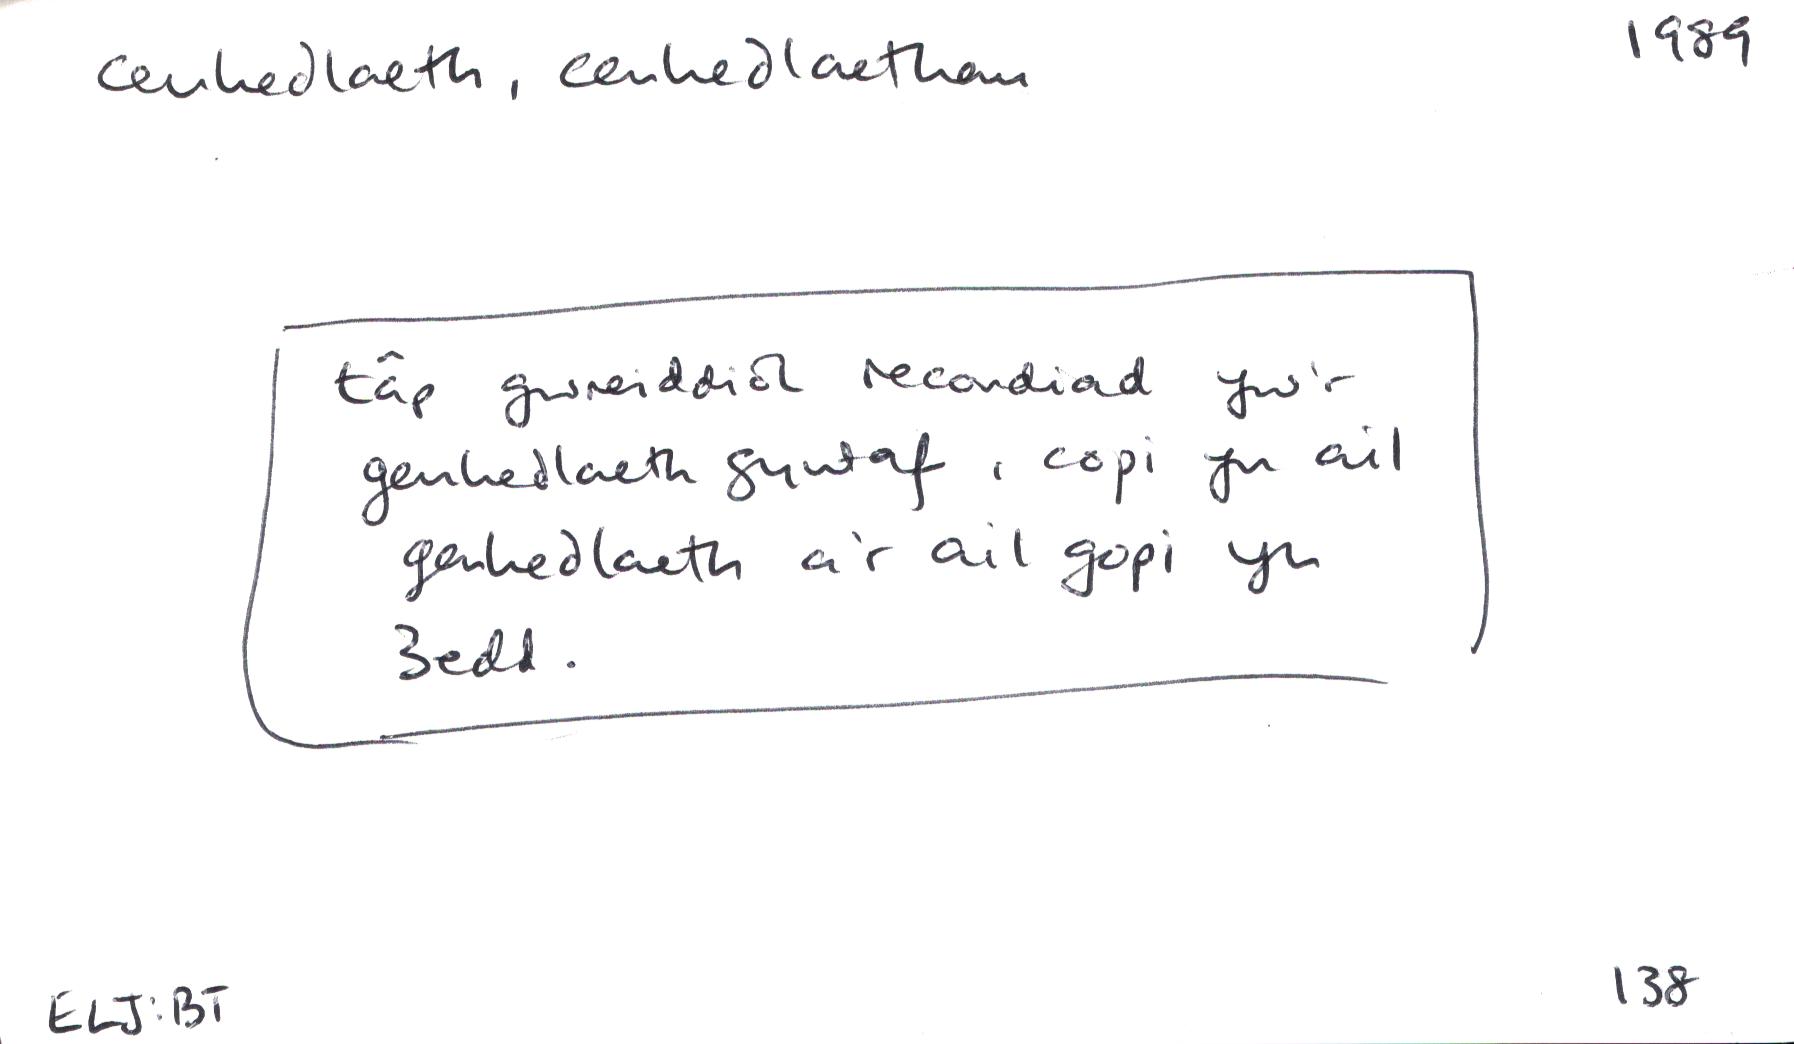 cenhedlaeth, cenhedlaethau 1989
tâp gwreiddiol recordiad yw'r
genhedlaeth gyntaf, copi yn ail
genhedlaeth a'r ail gopi yn
3edd.
ELJ:BT 138